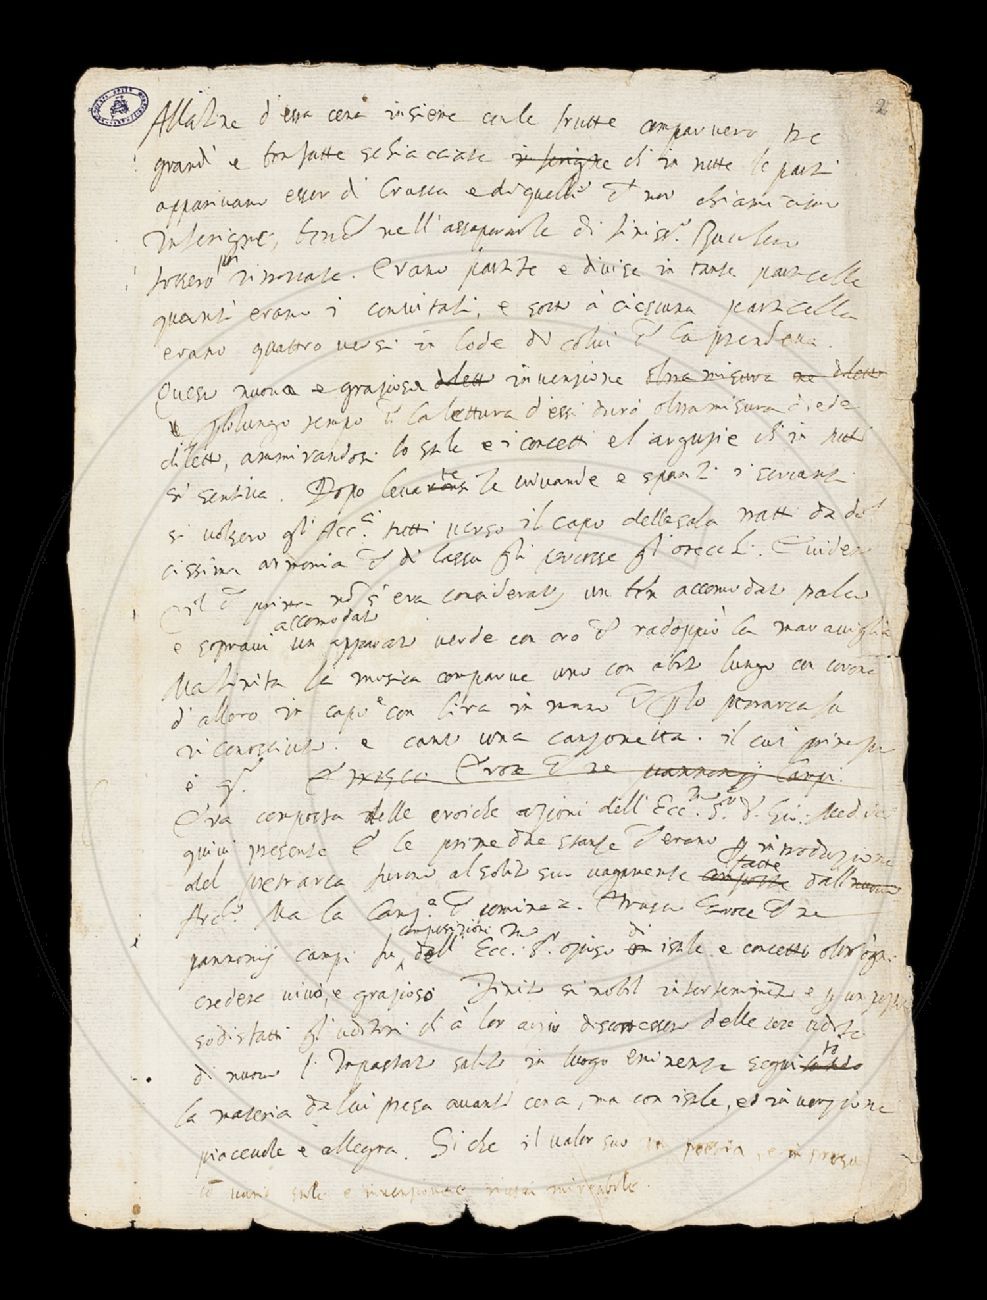 2
Alla fine d'essa cena insieme con le frutte comparvero tre
grandi e ben fatte schiacciate in ferigne ch in tutte le parti
apparivano esser di Crusca e di quelle ch noi chiamiamo
Inferigne, bench nell'assaporarle di finiss.
fossero poi ritrovate. Erano partite e divise in tante particelle
quanti erano i convitati, e sotto à ciascuna particella
erano quattro versi in lode di colui ch la prendeva.
Questa nuova e graziosa dilett invenzione oltra misura ne diletto
p lo lungo tempo ch la lettura d'essi durò oltra misura diede
diletto, ammirandosi lo stile e i concetti e l'arguzie ch in tutti
si sentiva. Dopo levate le vivande e spariti i serventi
si volsero gli Acc.ci tutti verso il capo della sala tratti da dol
cissima armonia ch di lassu gli percosse gli orecchi. E videro
ciò ch prima nō s'era considerato, un ben accomodato palco
e sopravi accomodato un apparato verde con oro ch radoppiò la maraviglia
Ma finita la musica comparve uno con abito lungo con corona
d'alloro in capo e con lira in mano ch p lo Petrarca fu
riconosciuto. e cantò una canzonetta. il cui principio
è q. Etrusco Eroe ch ne pannonij Campi
Era composta delle eroiche azioni dell'Ecc.mo S.r D. Gio: Medici
quivi presente e le prime due stanze ch'erano p introduzione
del Petrarca furono al solito suo vagamente composte fatte dall
Arc.o Ma la Canz.a ch comincia. Etrusco Eroe ch ne
pannonij campi fu composizioni dell' Ecc.mo S.r di stile e concetti oltr'ogni
credere vivo, e grazioso. Finito si nobil intertenimento e p un pezzo
sodisfatti gli uditori
di nuovo l'Impastato salito in luogo eminente seguitò
la materia da lui presa avanti cena, ma con istile, ed invenzione
piacevole e allegra. Si che il valor suo in poesia, e in prosa
con vario stile e invenzione riuscì mirabile.